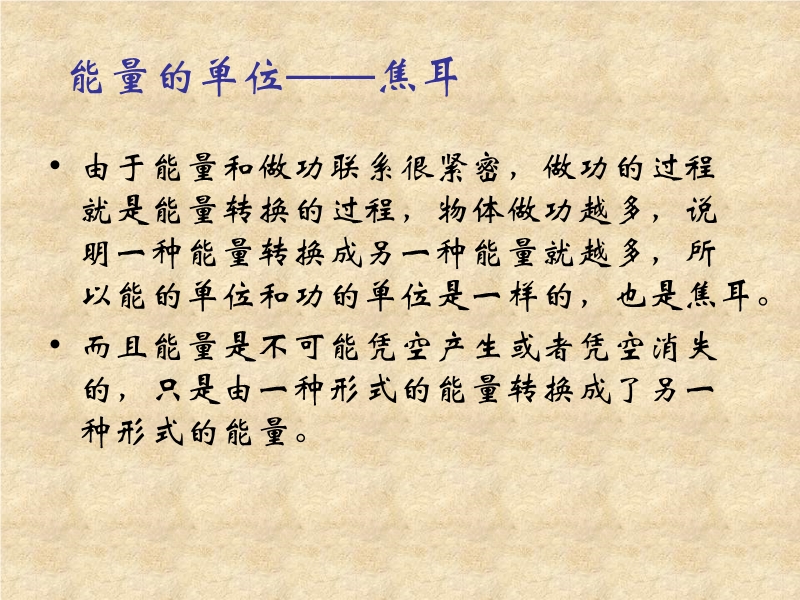 能量的单位——焦耳
• 由于能量和做功联系很紧密，做功的过程
就是能量转换的过程，物体做功越多，说
明一种能量转换成另一种能量就越多，所
以能的单位和功的单位是一样的，也是焦耳。
• 而且能量是不可能凭空产生或者凭空消失
的，只是由一种形式的能量转换成了另一
种形式的能量。